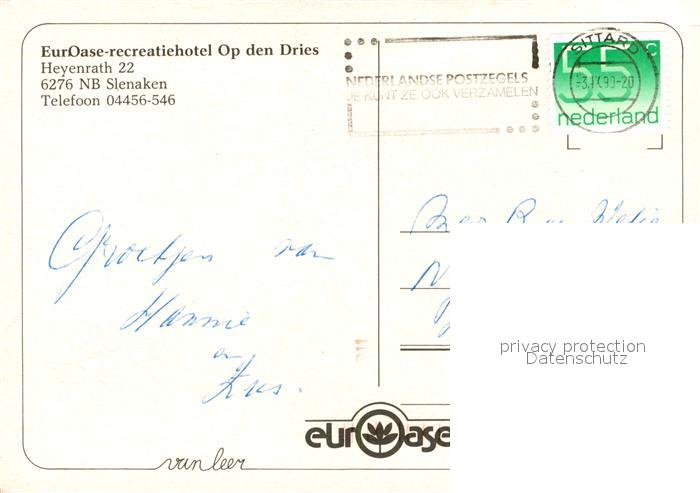 EurOase-recreatiehotel Op den Dries
Heyenrath 22
6276 NB Slenaken
Telefoon 04456-546
NEDERLANDSE POSTZEGELS
JE KUNT ZE OOK VERZAMELEN
SITTARD
55 c
nederland
Groetjes van
Hannie
en
Zus.
privacy protection
Datenschutz
eurOase
van leer